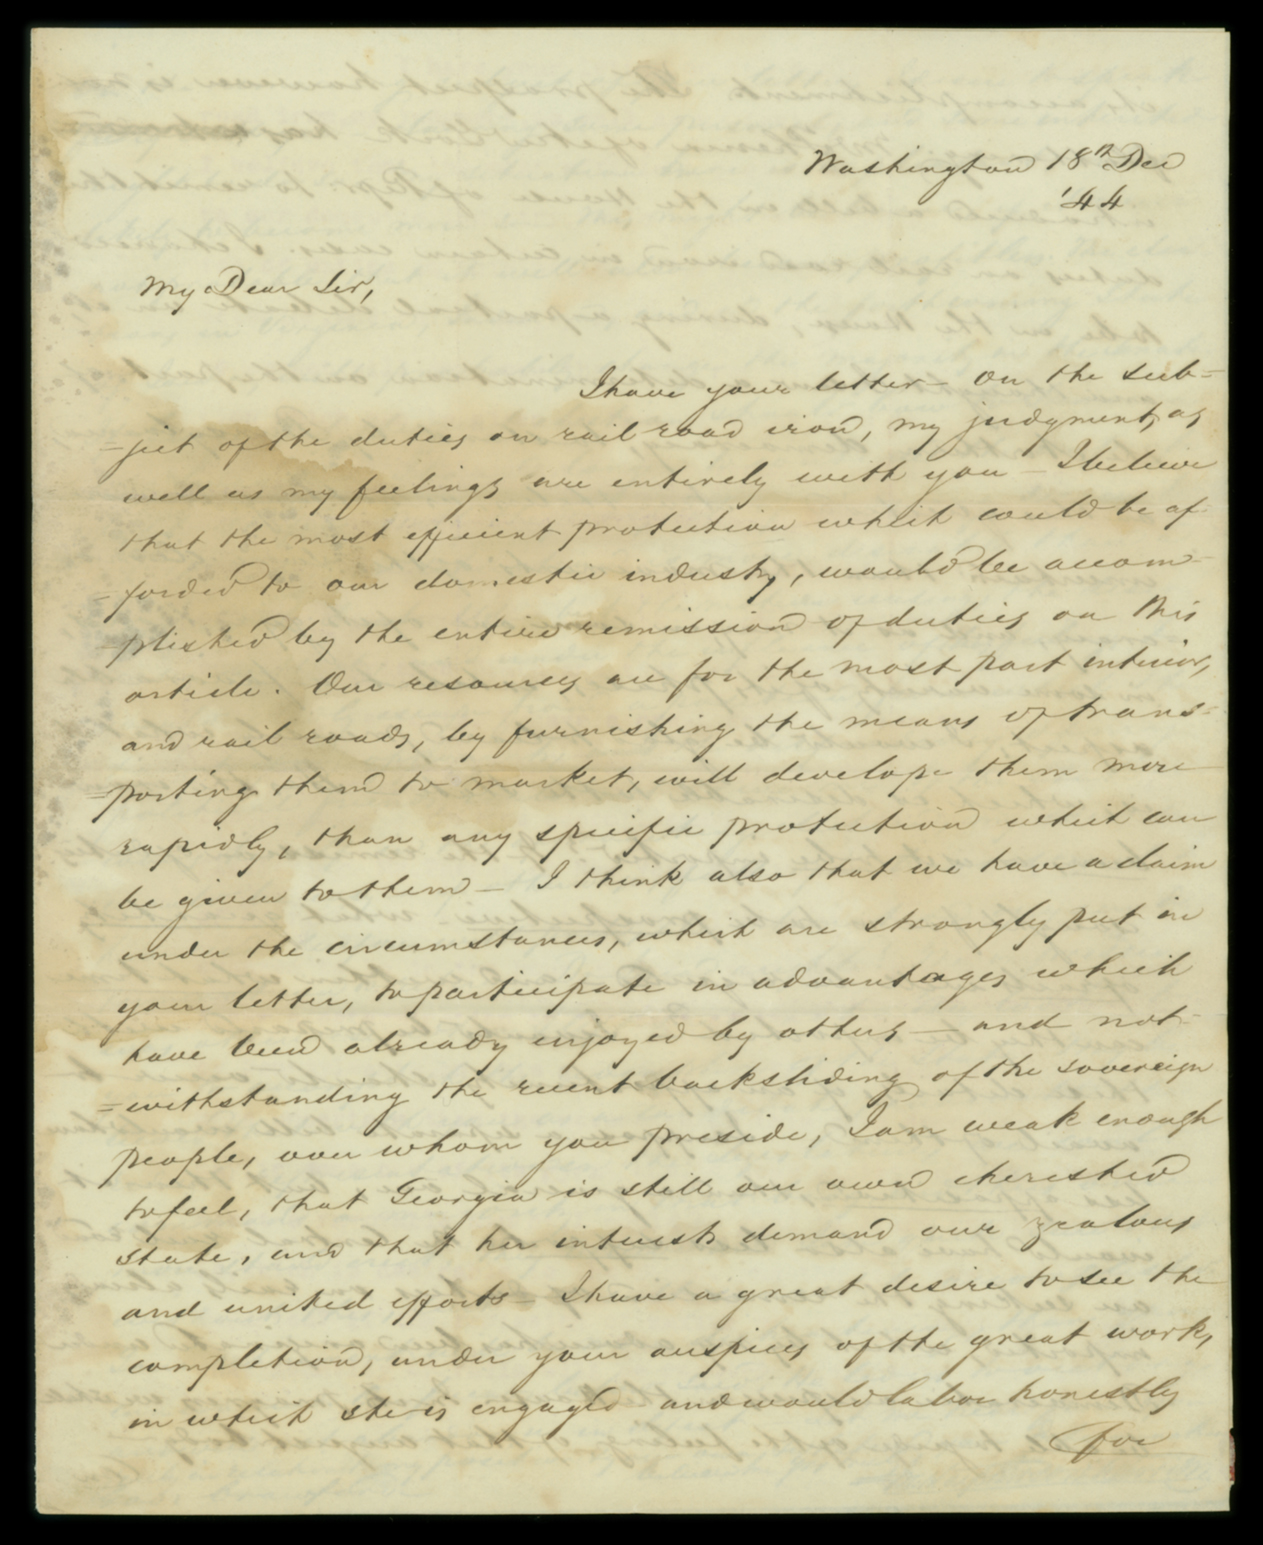 Washington 18th Dec
'44
My Dear Sir,
I have your letter - on the sub=
=ject of the duties on rail road iron, my judgment, as
well as my feelings are entirely with you - I believe
that the most efficient protection which could be af
=forded to our domestic industry, would be accom
=plished by the entire remission of duties on this
article. Our resources are for the most part interior,
and rail roads, by furnishing the means of trans=
=porting them to market, will develope them more
rapidly, than any specific protection which can
be given to them - I think also that we have a claim
under the circumstances, which are strongly put in
your letter, to participate in advantages which
have been already enjoyed by others - and not
=withstanding the recent backsliding of the sovereign
people, over whom you preside, I am weak enough
to feel, that Georgia is still our own cherished
state, and that her interests demand our zealous
and united efforts - I have a great desire to see the
completion, under your auspices of the great work,
in which she is engaged and would labor honestly
for